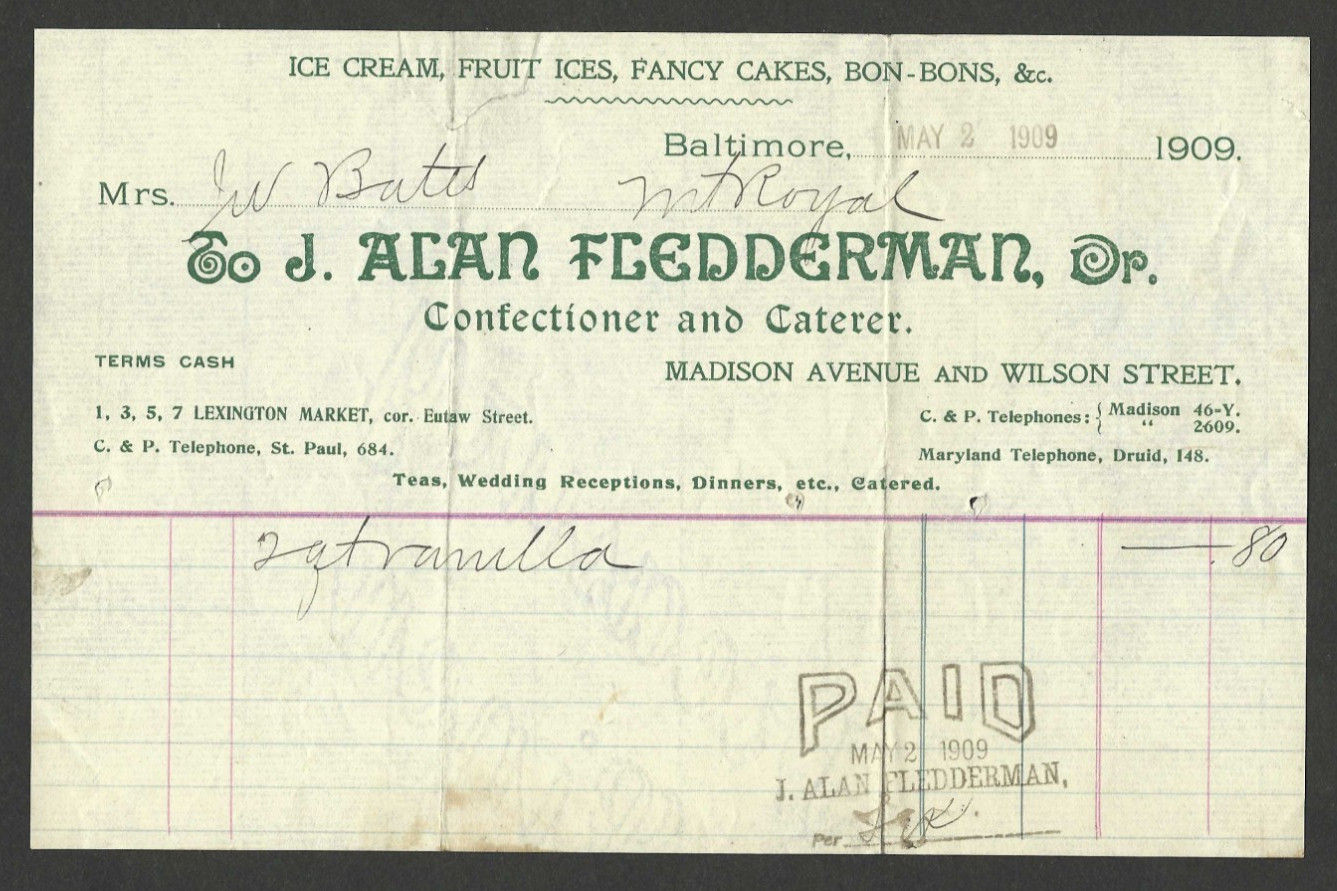 ICE CREAM, FRUIT ICES, FANCY CAKES, BON-BONS, &c.
Baltimore, MAY 2 1909 1909.
Mrs. JW Bates Mt Royal
To J. ALAN FLEDDERMAN, Dr.
Confectioner and Caterer.
TERMS CASH
MADISON AVENUE AND WILSON STREET.
1, 3, 5, 7 LEXINGTON MARKET, cor. Eutaw Street.
C. & P. Telephone, St. Paul, 684.
C. & P. Telephones: { Madison 46-Y.
“ 2609.
Maryland Telephone, Druid, 148.
Teas, Wedding Receptions, Dinners, etc., Catered.
2 qt vanilla — .80
PAID
MAY 2 1909
J. ALAN FLEDDERMAN,
Per